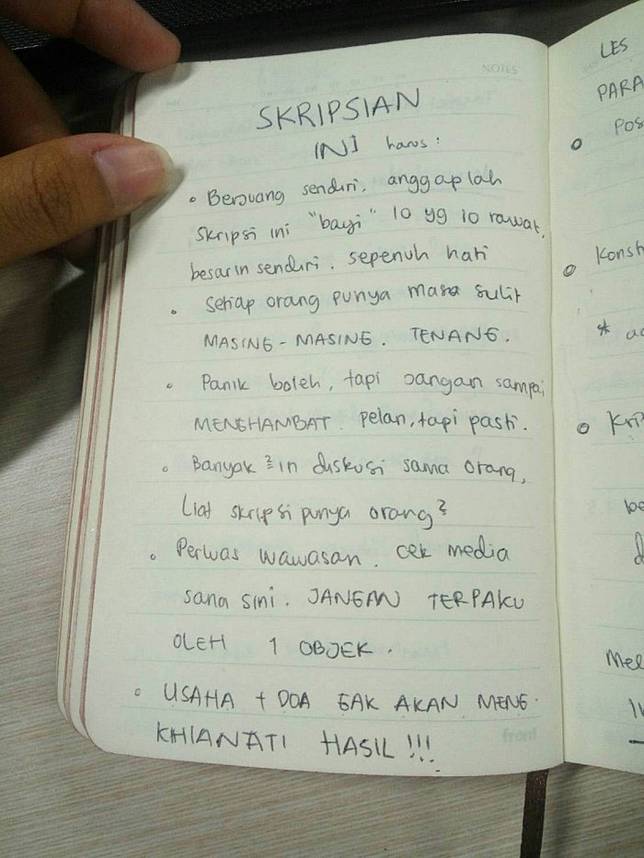 NOTES
SKRIPSIAN
INI harus :
• Berjuang sendiri, anggaplah
skripsi ini "bayi" lo yg lo rawat,
besarin sendiri. sepenuh hati
• Setiap orang punya masa sulit
MASING - MASING. TENANG.
• Panik boleh, tapi jangan sampai
MENGHAMBAT. pelan, tapi pasti.
• Banyak ²in diskusi sama orang,
Liat skripsi punya orang²
• Perluas wawasan. cek media
sana sini. JANGAN TERPAKU
OLEH 1 OBJEK.
• USAHA + DOA GAK AKAN MENG-
KHIANATI HASIL !!!
front
LES
PARA
Pos
Konst
* ad
Kri
be
d
Mel